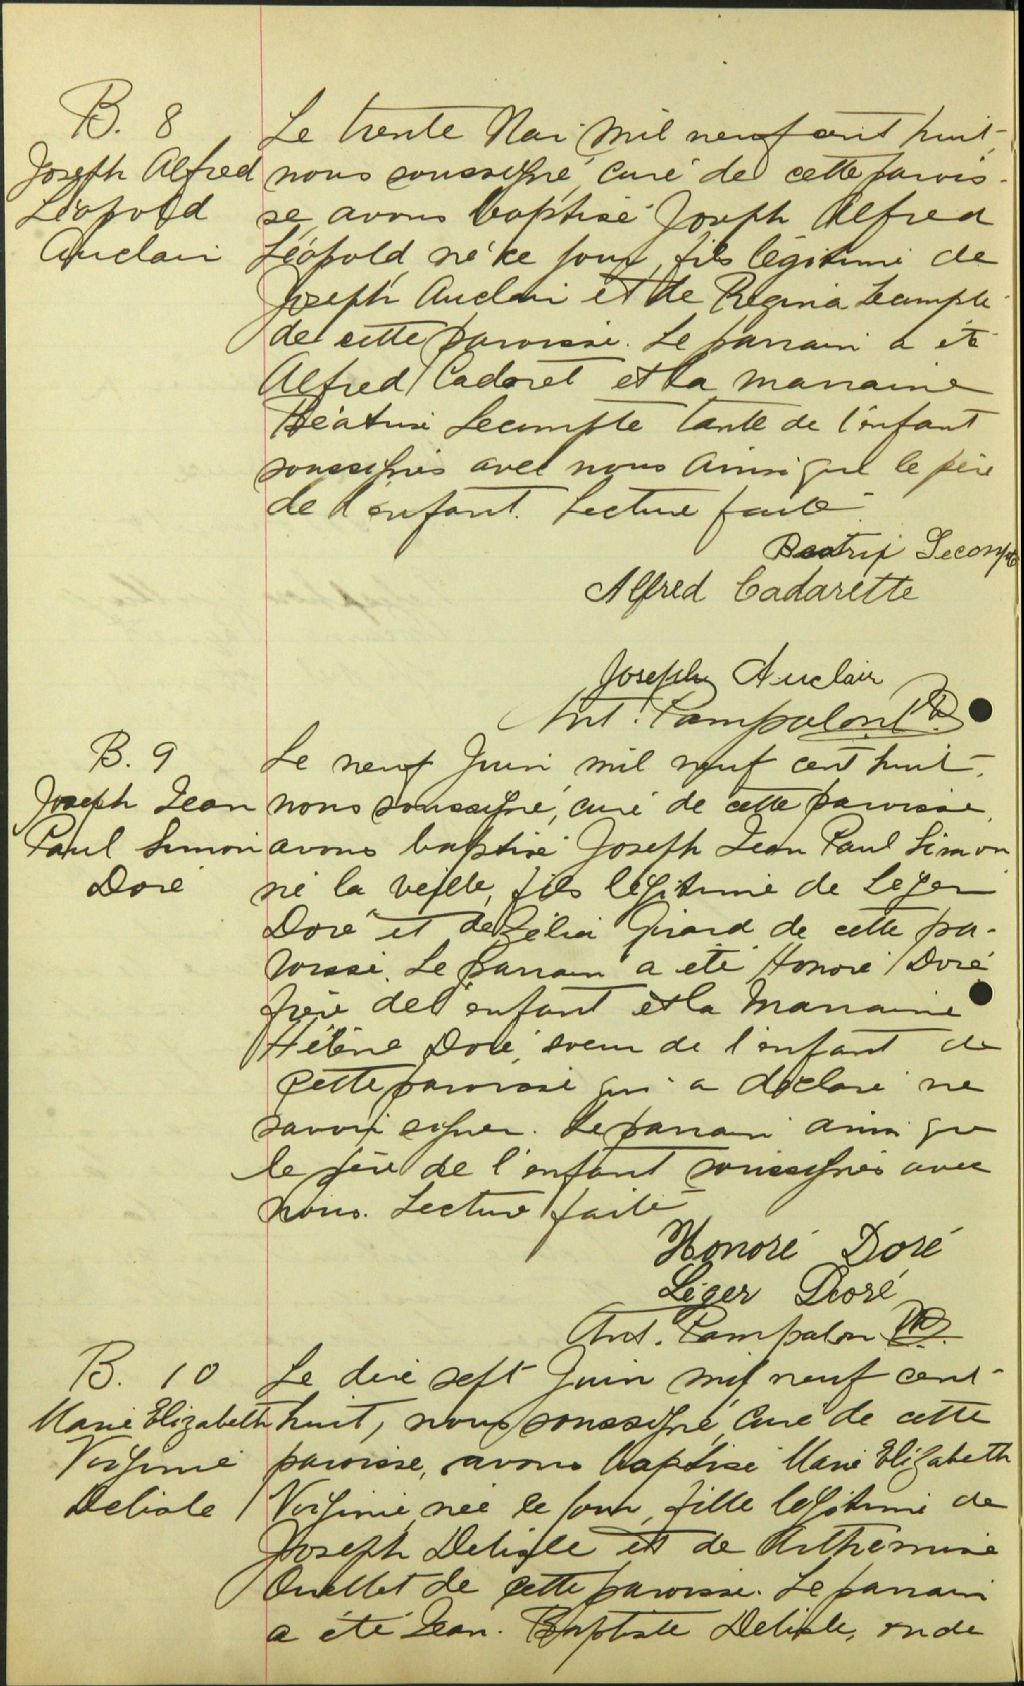 B. 8
Joseph Alfred
Léopold
Auclair
Le trente Mai mil neuf cent huit,
nous soussigné, curé de cette parois-
se, avons baptisé Joseph Alfred
Léopold, né ce jour, fils légitime de
Joseph Auclair et de Regina Lecompte
de cette paroisse. Le parrain a été
Alfred Cadoret et la marraine
Béatrice Lecompte tante de l'enfant
soussignés avec nous ainsi que le père
de l'enfant. Lecture faite
Beatrix Lecompte
Alfred Cadarette
Joseph Auclair
Ant. Pampalon Ptr
B. 9
Joseph Jean
Paul Simon
Doré
Le neuf Juin mil neuf cent huit,
nous soussigné, curé de cette paroisse,
avons baptisé Joseph Jean Paul Simon
né la veille, fils légitime de Leger
Doré et de Zélia Girard de cette pa-
roisse. Le parrain a été Honoré Doré
frère de l'enfant et la marraine
Hélène Doré, soeur de l'enfant de
cette paroisse qui a déclaré ne
savoir signer. Le parrain ainsi que
le père de l'enfant soussignés avec
nous. Lecture faite
Honoré Doré
Léger Doré
Ant. Pampalon Ptr.
B. 10
Marie Elizabeth
Virginie
Delisle
Le dix sept Juin mil neuf cent
huit, nous soussigné, curé de cette
paroisse, avons baptisé Marie Elizabeth
Virginie, née ce jour, fille légitime de
Joseph Delisle et de Arthemise
Ouellet de cette paroisse. Le parrain
a été Jean-Baptiste Delisle, oncle